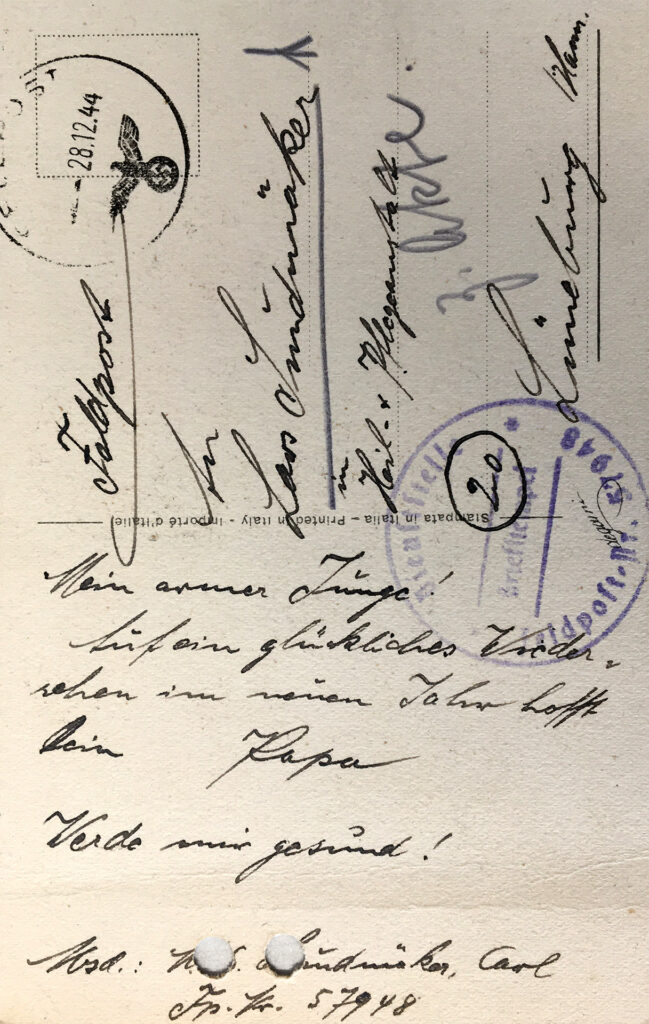 28.12.44
Feldpost
An
Lars Sundmäker
im
Heil- u. Pflegeanstalt
z. Akte.
(20) Lüneburg /Hann.
Briefstempel
Feldpost-Nr. 57948
Stampata in Italia – Printed in Italy - Importé d'Italie
Mein armer Junge!
Auf ein glückliches Wieder-
sehen im neuen Jahr hofft
Dein Papa
Werde mir gesund!
Absd.: Sundmäker, Carl
Fp. Nr. 57948